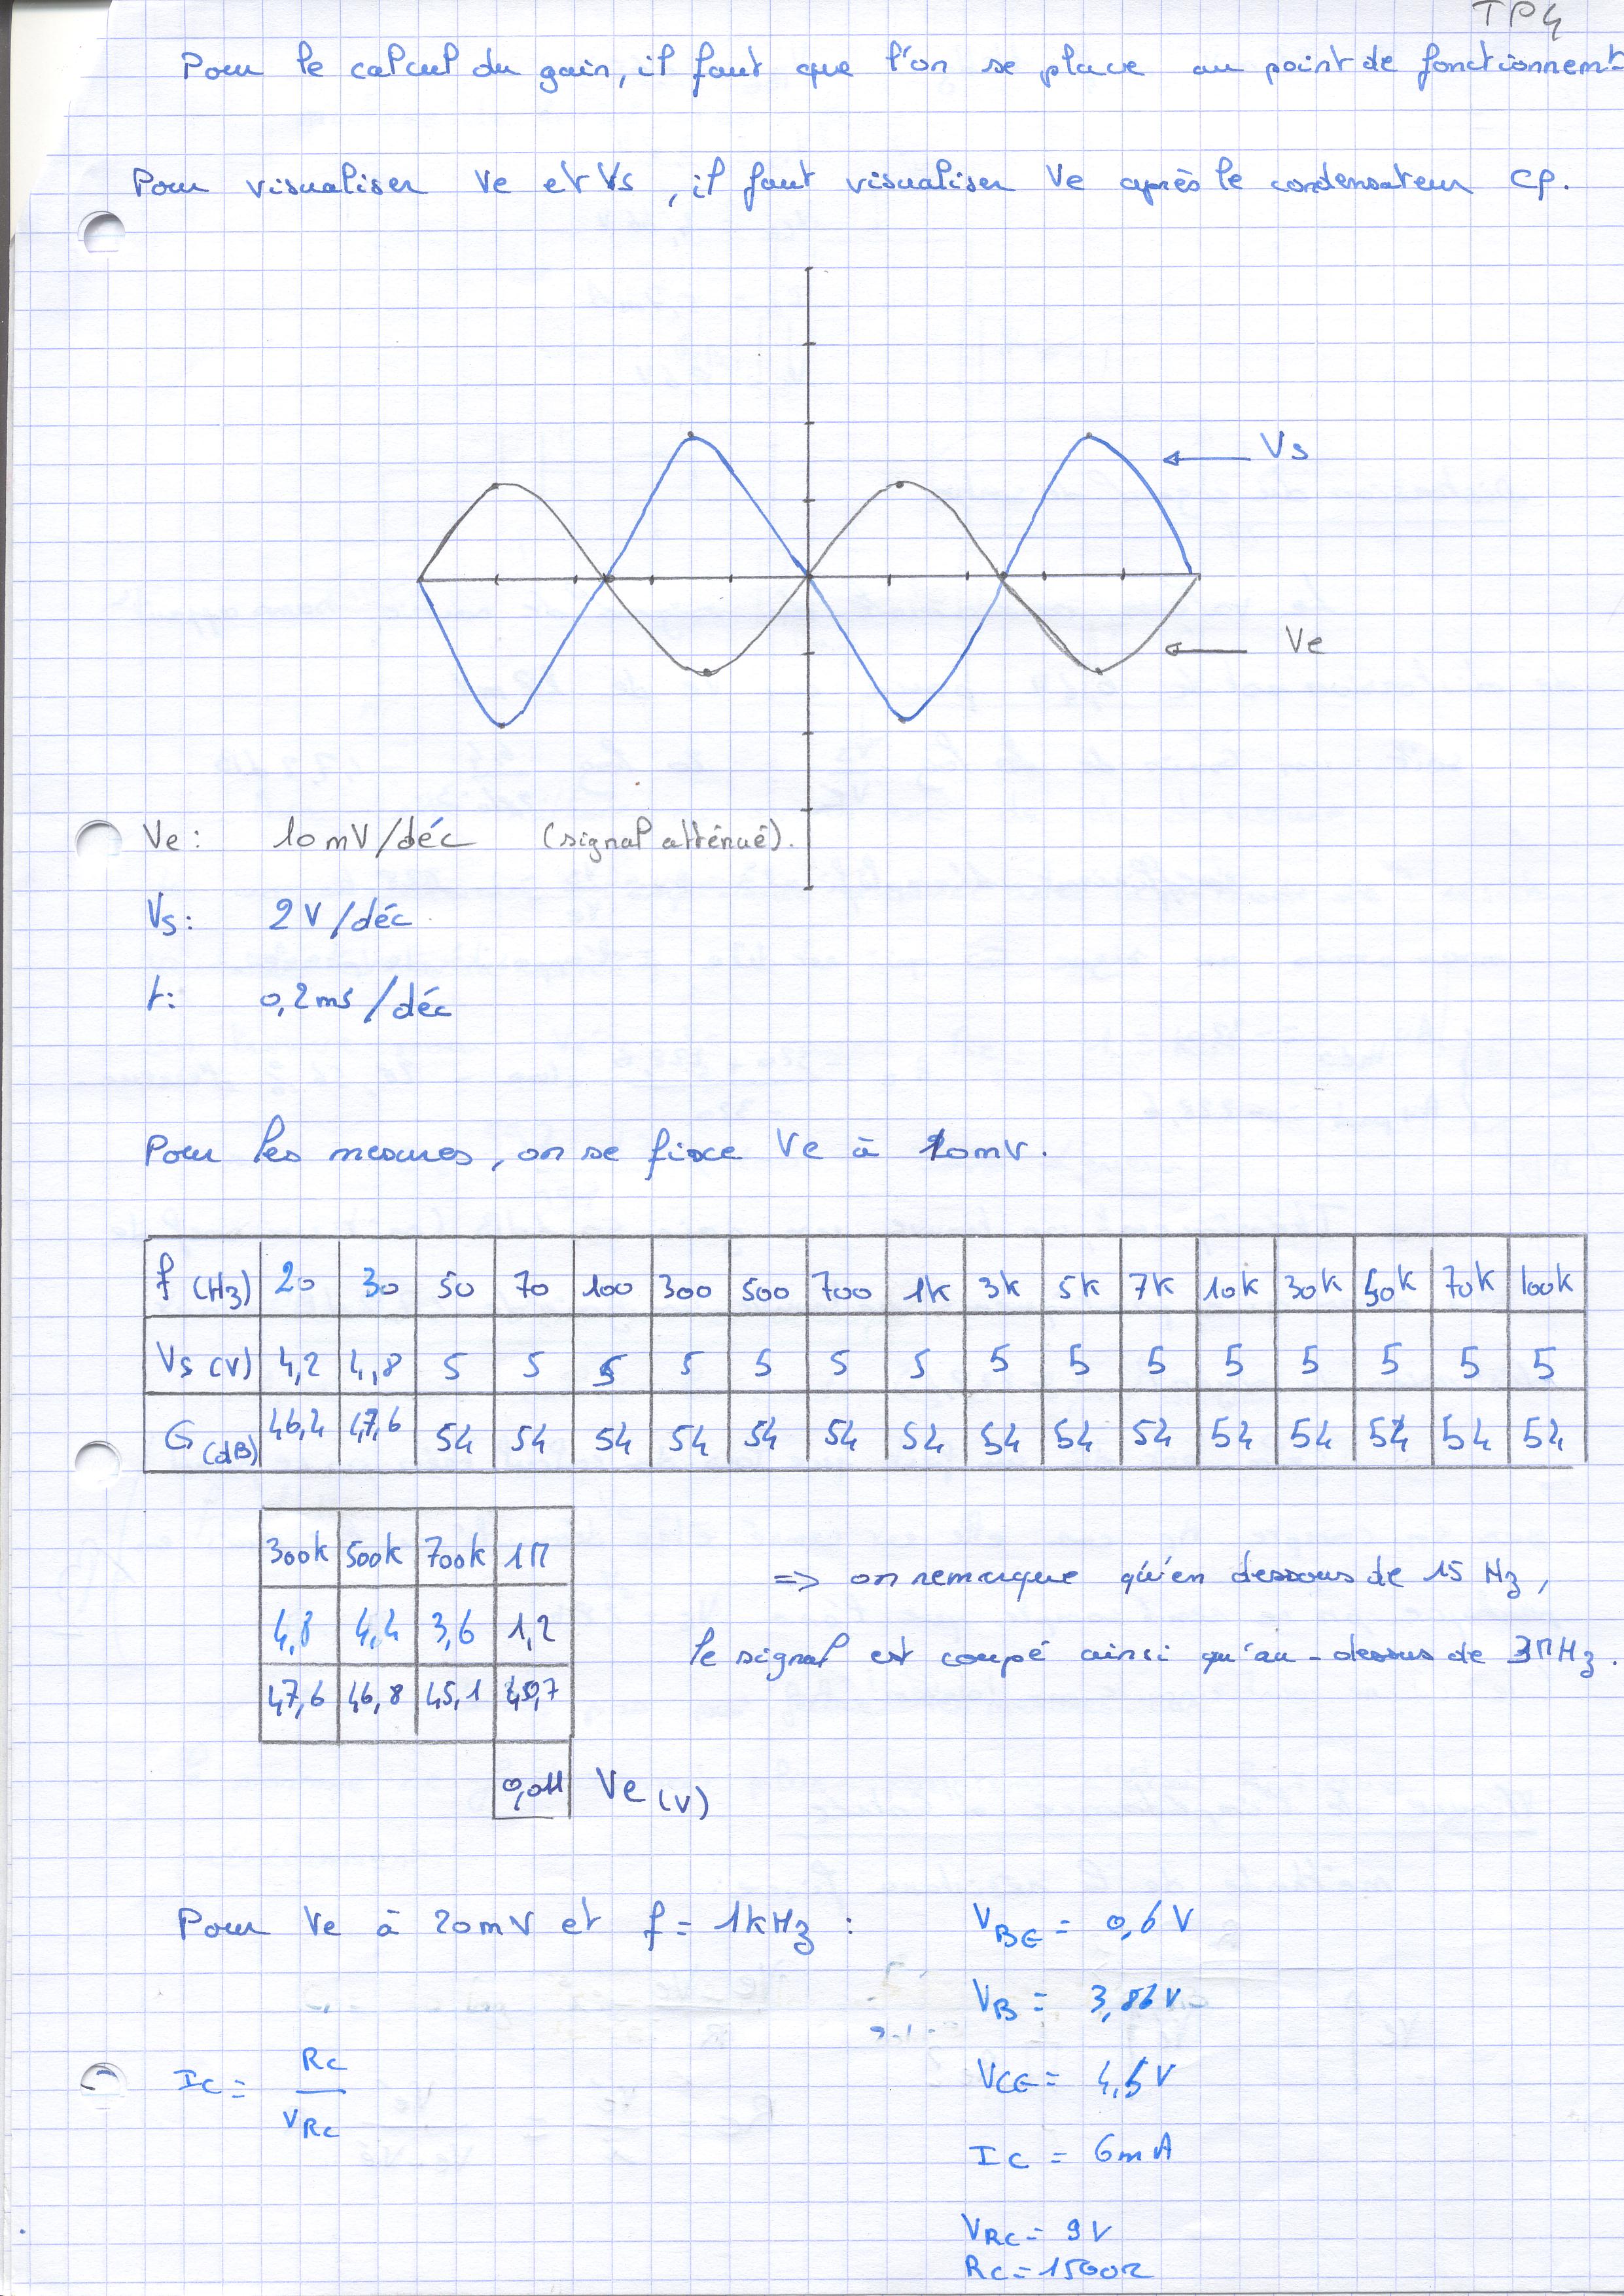 TP4
Pour le calcul du gain, il faut que l'on se place au point de fonctionnement
Pour visualiser Ve et Vs, il faut visualiser Ve après le condensateur CP.
Vs
Ve
Ve: 10mV/déc (signal atténué).
Vs: 2V/déc
t: 0,2ms/déc
Pour les mesures, on se fixe Ve à 10mV.
f (Hz) 20 30 50 70 100 300 500 700 1k 3k 5k 7k 10k 30k 50k 70k 100k
Vs (V) 4,2 4,8 5 5 5 5 5 5 5 5 5 5 5 5 5 5 5
G (dB) 46,4 47,6 54 54 54 54 54 54 54 54 54 54 54 54 54 54 54
300k 500k 700k 1M
4,8 4,4 3,6 1,2
47,6 46,8 45,1 40,7
0,011 Ve (V)
=> on remarque qu'en dessous de 15 Hz,
le signal est coupé ainsi qu'au-dessus de 3MHz.
Pour Ve à 20mV et f = 1kHz :
VBE = 0,6 V
VB = 3,86 V
VCE = 4,5 V
Ic = Rc / VRc
Ic = 6mA
VRc = 9V
Rc = 1500Ω